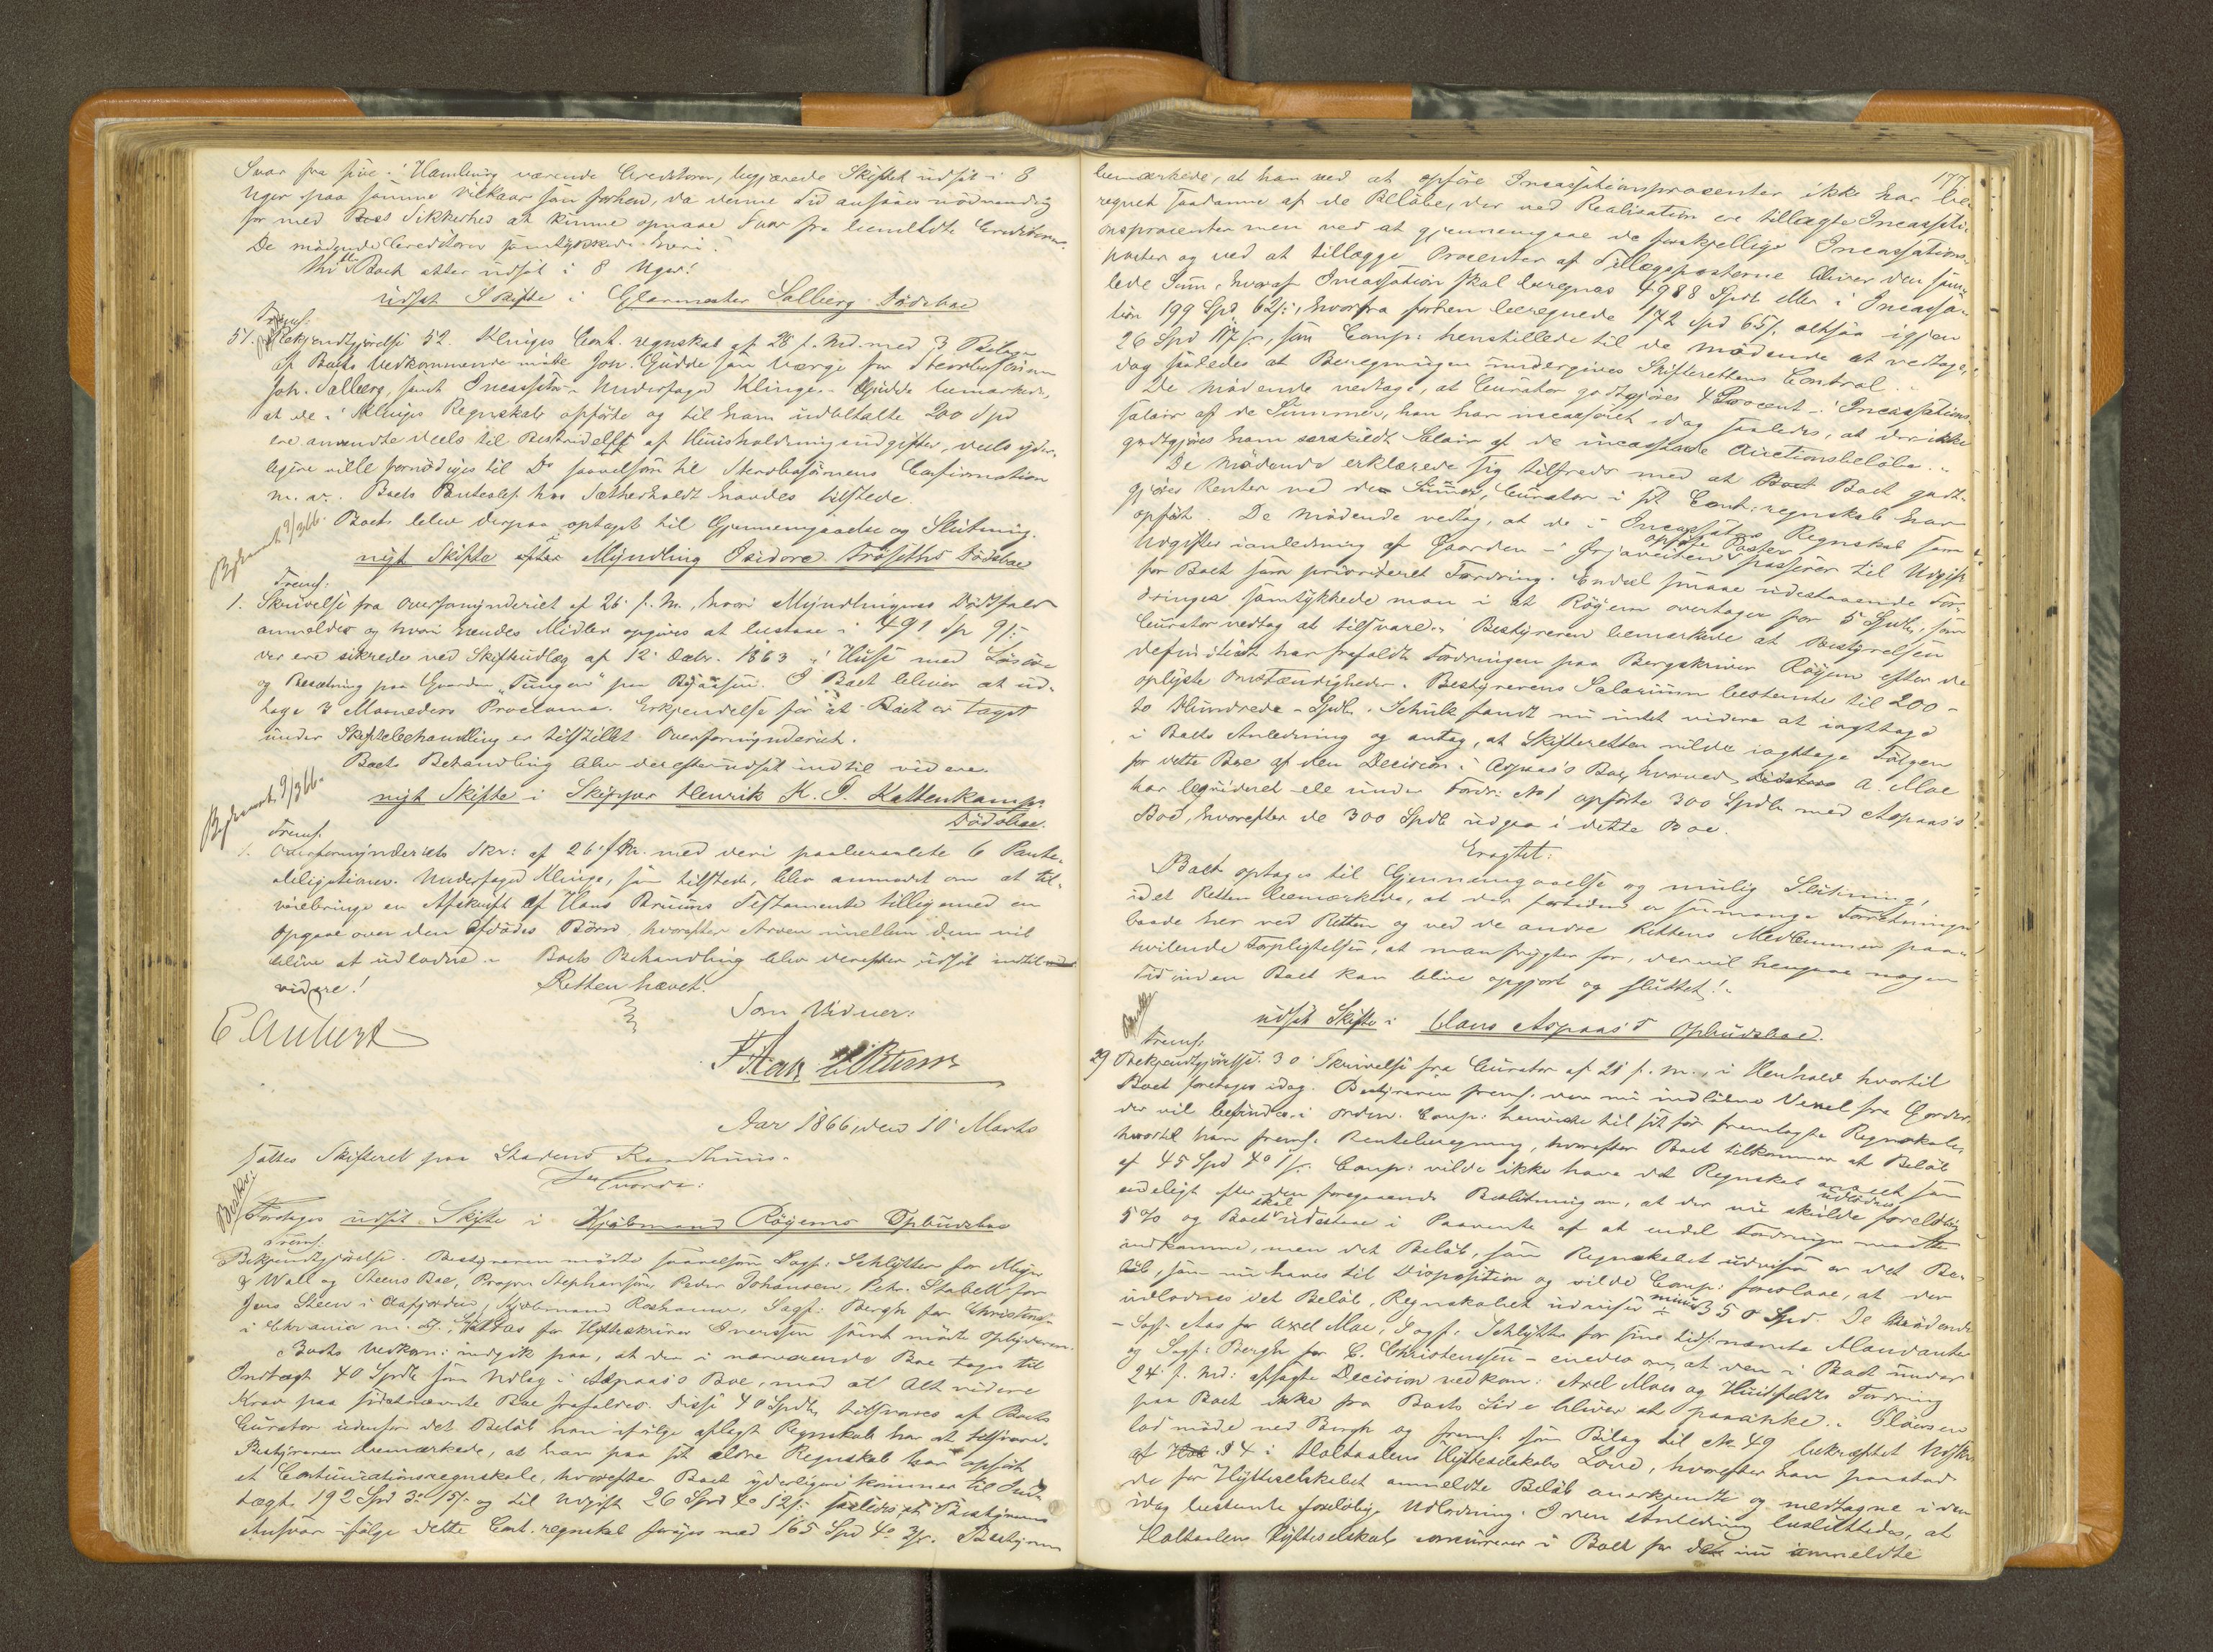 Svar fra sine i Hamburg værende Creditorer, begjærede Skiftet udsat i 8
Uger paa samme Vilkaar som forhen, da denne Tid ansaaes nødvendig
for med Sikkerhed at kunne opnaae Svar fra bemeldte Creditorer.
De mødende Creditorer samtykkede heri.
Thi Boet atter udsat i 8 Uger!
udsat Skifte i Glarmester Salberg Dødsboe
Frem:
51. Bekjendtgjørelse 52. Klinges Cont. regnskab af 28 f. Md. med 3 Bilage
af Boets Vedkommende mødte Joh. Gudde som Værge for Sterbosønnen
Joh. Salberg, samt Incassator Underfoged Klinge. Gudde bemærkede,
at de i Klinges Regnskab opførte og til ham udbetalte 200 Spd
ere anvendte deels til Bestridelse af Huusholdningsudgifter, deels yder-
ligere ville fornødiges til Do saavelsom til Sterbosønnens Confirmation
m. v. Boets Panteobl. hos Sætherholdt havdes tilstede.
Boets blev derpaa optaget til Gjennemgaaelse og Slutning.
Bydnavnt. 9/3 66.
nyt Skifte efter Myndling Isidore Frøseths Dødsboe
Frem:
1. Skrivelse fra Overformynderiet af 26 f. M., hvori Myndlingens Dødsfald
anmeldes og hvori hendes Midler opgives at bestaae i 491 Sp 91 s
der ere sikrede ved Skifteudlæg af 12 Decbr. 1863 i Huse med Løsøre
og Besætning paa Gaarden "Tungen" paa Byaasen. I Boet bliver at ud-
tage 3 Maaneders Proclama. Erkjendelse for at Boet er taget
under Skiftebehandling er tilstillet Overformynderiet.
Boets Behandling blev derefter udsat indtil videre.
Bydnavnt. 9/3 66.
nyt Skifte i Skipper Henrik K. J. Kattenkamps
Dødsboe.
Frem:
1. Overformynderiets Skr: af 26 f. M. med deri paaberaabte 6 Pante-
obligationer. Underfoged Klinge, som tilstede, blev anmodet om at til-
veiebringe en Afskrift af Hans Bruuns Testamente tilligemed en
Opgave over den afdødes Børn, hvorefter Arven imellem dem vil
blive at udlodde. Boets Behandling blev derefter udsat indtil
videre! Retten hævet.
E. Aubert
Som Vidner:
Aar 1866, den 10 Marts
sattes Skifteret paa Stadens Raadhuus.
Foretages udsat Skifte i Kjøbmand Røyems Opbudsboe
Frem:
Bekjendtgjørelse. Bestyreren mødte saavelsom Sagf: Schlytter for Meyer
& Wall og Steens Boe, Brager Stephansen, Peder Johansen, Petr. Stabell for
Jens Steen i Aafjorden, Kjøbmand Roshauw, Sagf: Bergh for Christens-
i Chrania m. fl., Aas for Hytteskriver Iversen samt mødte Opbyderen.
Boets Vedkom: indgik paa, at der i nærværende Boe tages til
Indtægt 40 Spdl som Udlæg i Aspaas's Boe, mod at Alt videre
Krav paa sidstnævnte Boe frafaldes. Disse 40 Spdl tilsvares af Boets
Curator udenfor det Beløb han ifølge aflagt Regnskab har at tilsvare.
Bestyreren bemærkede, at han paa sit ældre Regnskab har opført
et Continuationsregnskab, hvorefter Boet yderligere kommer til Ind-
tægt 192 Spd 3 o 15 s og til Udgift 26 Spd 4 o 12 s saaledes at Bestyrerens
Ansvar ifølge dette Cont. regnskab forøges med 165 Spd 4 o 3 s. Bestyreren
177
bemærkede, at han ved at opføre Incassationsprocenter ikke har be-
regnet saadanne af de Beløbe, der ved Realisation ere tillagte Incassati-
onsprocenter men ved at gjennemgaae de forskjellige Incassations-
poster og ved at tillægge Procenter af Tillægsposterne bliver den sam-
lede Sum, hvoraf Incassation skal beregnes 4988 Spdl eller i Incassa-
tion 199 Spd 62 s, hvorfra forhen beregnede 172 Spd 65 s altsaa igjen
26 Spd 117 s, som Comp: henstillede til de mødende at vedtage,
dog saaledes at Beregningen undergives Skifterettens Control.
De mødende vedtage, at Curator godtgjøres 4 Procent i Incassations-
salair af de Summer, han har incasseret, dog saaledes, at der ikke
godtgjøres ham særskildt Salair af de incasserede Auctionsbeløbe.
De mødende erklærede sig tilfreds med at Boet godt-
gjøres Renter med den Summa, Curator i sit Cont: regnskab har
opført. De mødende vedtog, at de i Incassators Regnskab som
Udgifter i anledning af Gaarden i Ørjaveiten opførte Poster passerer til Udgift
for Boet som prioriteret Fordring. Endeel smaae udestaaende For-
dringer samtykkede man i at Røyem overtager for 5 Spdl, som
Curator vedtog at tilsvare. Bestyreren bemærkede at Bestyrelsen
definitivt har frafaldt Fordringen paa Bergskriver Røyem efter de
oplyste Omstændigheder. Bestyrerens Salarium bestemtes til 200 -
to Hundrede - Spdl. Schulz fandt nu intet videre at iagttage
i Boets Anledning og antog, at Skifteretten vilde iagttage Følgen
for dette Boe af den Decision i Aspaas's Boe, hvorved A. Moe
har liqvideret de under Fordr: No 1 opførte 300 Spdl med Aspaas's
Boe, hvorefter de 300 Spdl udgaa i dette Boe.
Eragtet:
Boet optages til Gjennemgaaelse og mulig Slutning,
idet Retten bemærkede, at der fortiden er saamange Forretninger
baade her ved Retten og ved de andre Rettens Medlemmer paa-
hvilende Forpligtelser, at man frygter for, der vil hengaae nogen
Tid inden Boet kan blive opgjort og sluttet!
udsat Skifte i Claus Aspaas's Opbudsboe.
Frem:
29 Bekjendtgjørelse. 30 Skrivelse fra Curator af 21 f. M., i Henhold hvortil
Boet foretages idag. Bestyreren frem: den nu indløbne Vexel fra Gorder,
der vil befindes i Orden. Comp: henviste til sit før fremlagte Regnskab,
hvortil han frem: Renteberegning, hvorefter Boet tilkommer et Beløb
af 45 Spd 4 o 1 s. Comp: vilde ikke have det Regnskab anseet som
endeligt efter den foregaaende Beslutning om, at der nu skulde foreløbig udloddes
5 % og Boet skal udestaae i Paavente af at endel Fordringer maatte
indkomme, men det Beløb, som Regnskabet udviser er det Be-
løb, som nu haves til Disposition og vilde Comp: foreslaae, at der
udloddes det Beløb, Regnskabet udviser minus 350 Spd. De mødende
- Sagf. Aas for Axel Moe, Sagf. Schlytter for sine tidl: nævnte Mandanter
og Sagf: Bergh for C. Christenssen - enedes om, at den i Boet under
24 f. Md: afsagte Decision vedkom: Axel Moes og Huitfeldts Fordring
paa Boet ikke fra Boets Side bliver at paaanke. Gløersen
lod møde ved Bergh og frem: som Bilag til No 49 bekræftet Udskr.
af § 4 i Holtaalens Hytteselskabs Love, hvorefter han paastod
de for Hytteselskabet anmeldte Beløb anerkjendte og medtagne i den
idag bestemte foreløbige Udlodning. I den Anledning besluttedes, at
Holtaalens Hytteselskab concurrerer i Boet for det nu anmeldte